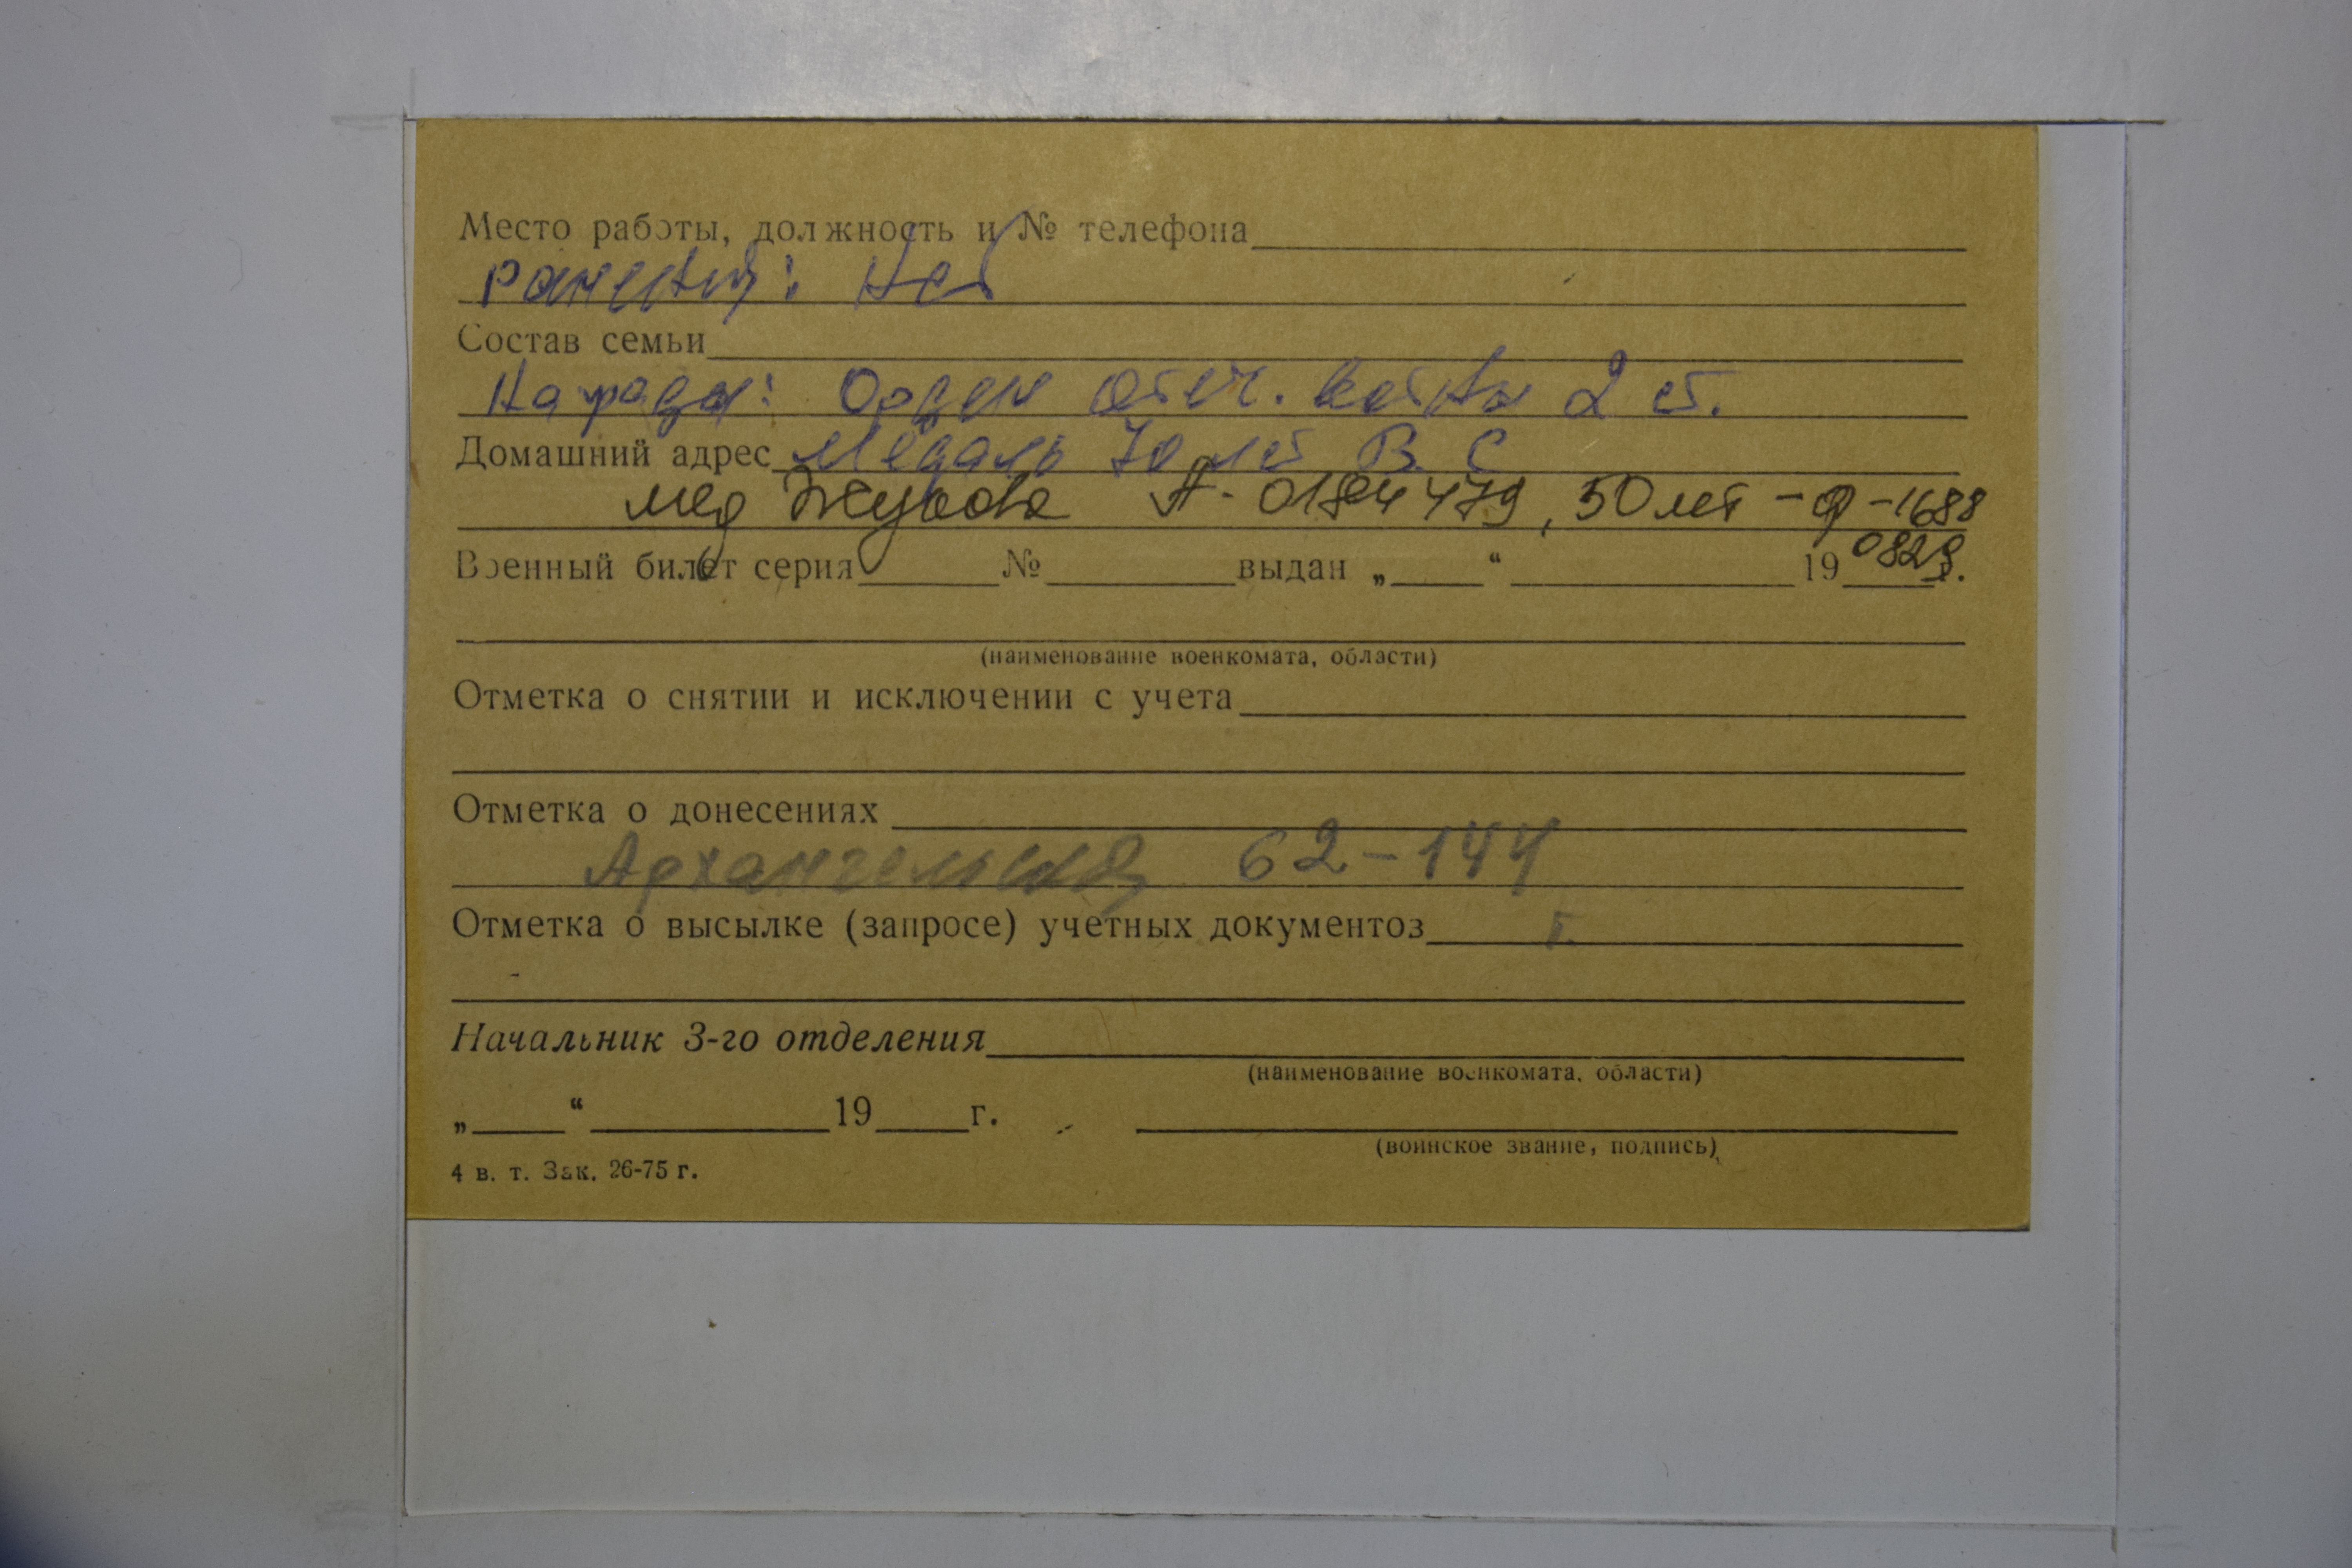 Место работы, должность и № телефона
Ранений: Нет
Состав семьи
Награды: Орден Отеч. войны 2 ст.
Домашний адрес Медаль 70 лет В. С
мед Жукова А- 0184479, 50 лет - Ф - 1688
0829
Военный билет серия № выдан „ “ 19 г.
(наименование военкомата, области)
Отметка о снятии и исключении с учета
Отметка о донесениях
Архангельская 62-144
Отметка о высылке (запросе) учетных документов г.
Начальник 3-го отделения
(наименование военкомата, области)
„ “ 19 г.
(воинское звание, подпись)
4 в. т. Зак. 26-75 г.